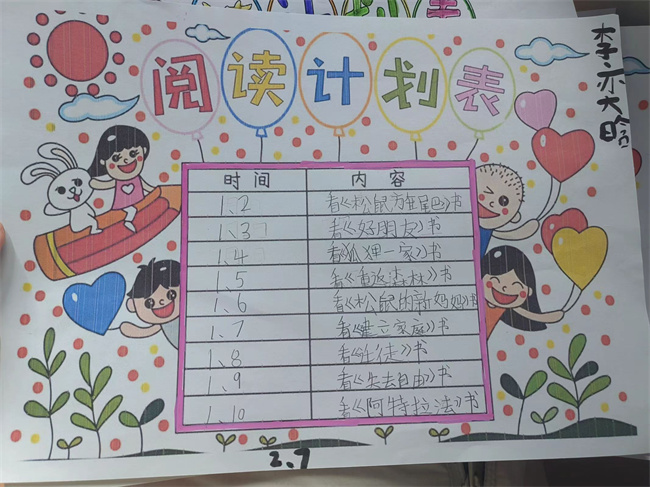 阅读计划表
李亦大
时间 内容
1、2 看《松鼠旅尾巴》书
1、3 看《好朋友》书
1、4 看《狐狸一家》书
1、5 看《重返森林》书
1、6 看《松鼠的新妈妈》书
1、7 看《建立家庭》书
1、8 看《徒》书
1、9 看《失去自由》书
1、10 看《阿特拉法》书
2、7